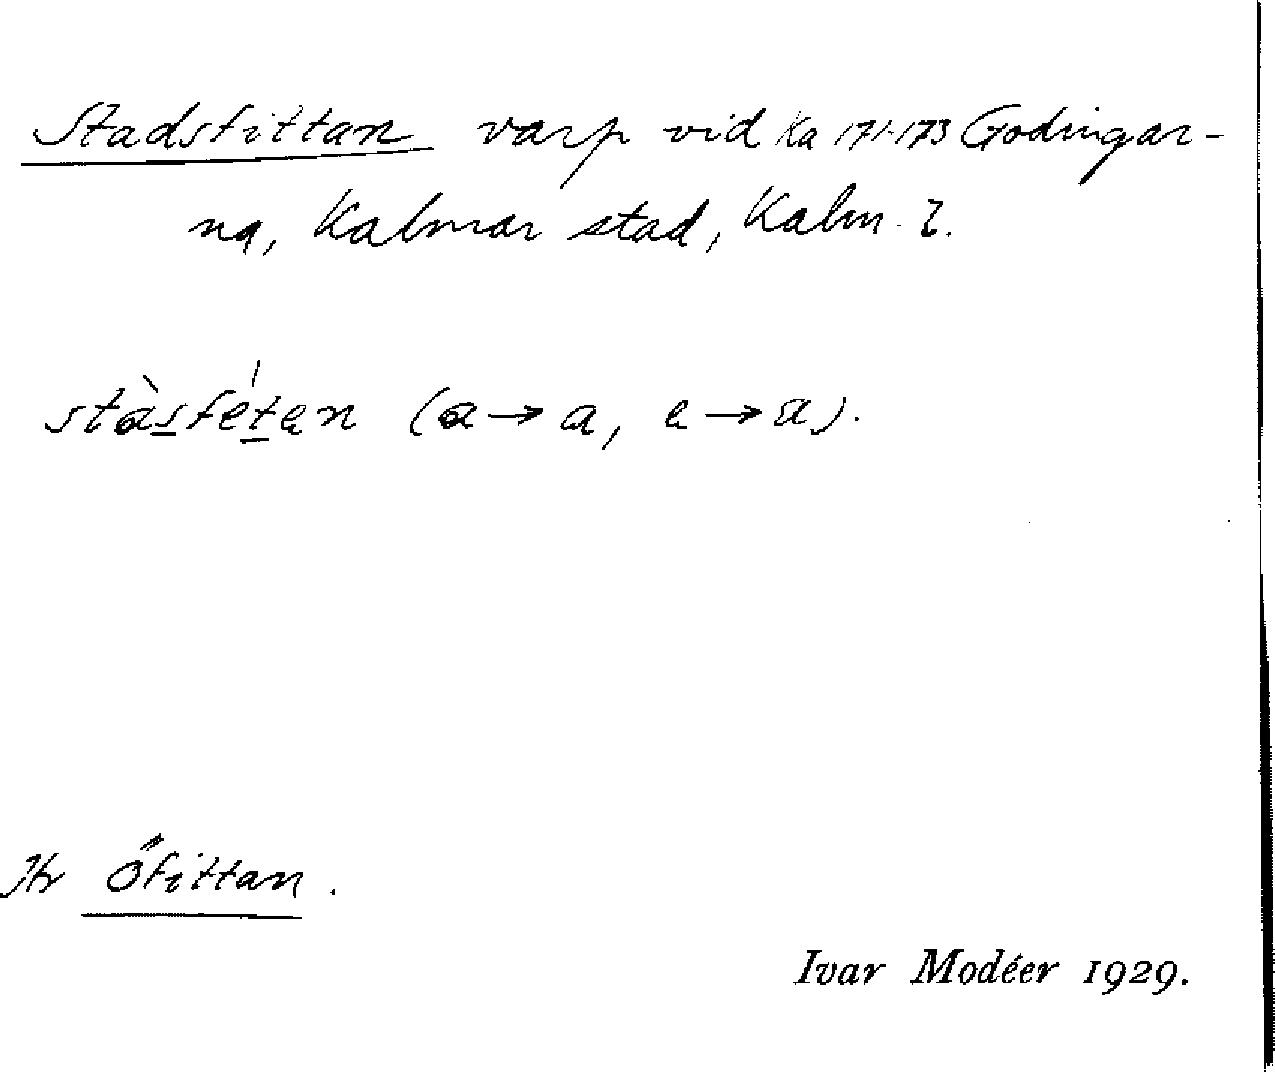 Stadsfittan varp vid Ka 171-173 Godingar-
na, Kalmar stad, Kalm. l.
stàsfétan (a→a, e→a).
Jfr Öfittan.
Ivar Modéer 1929.